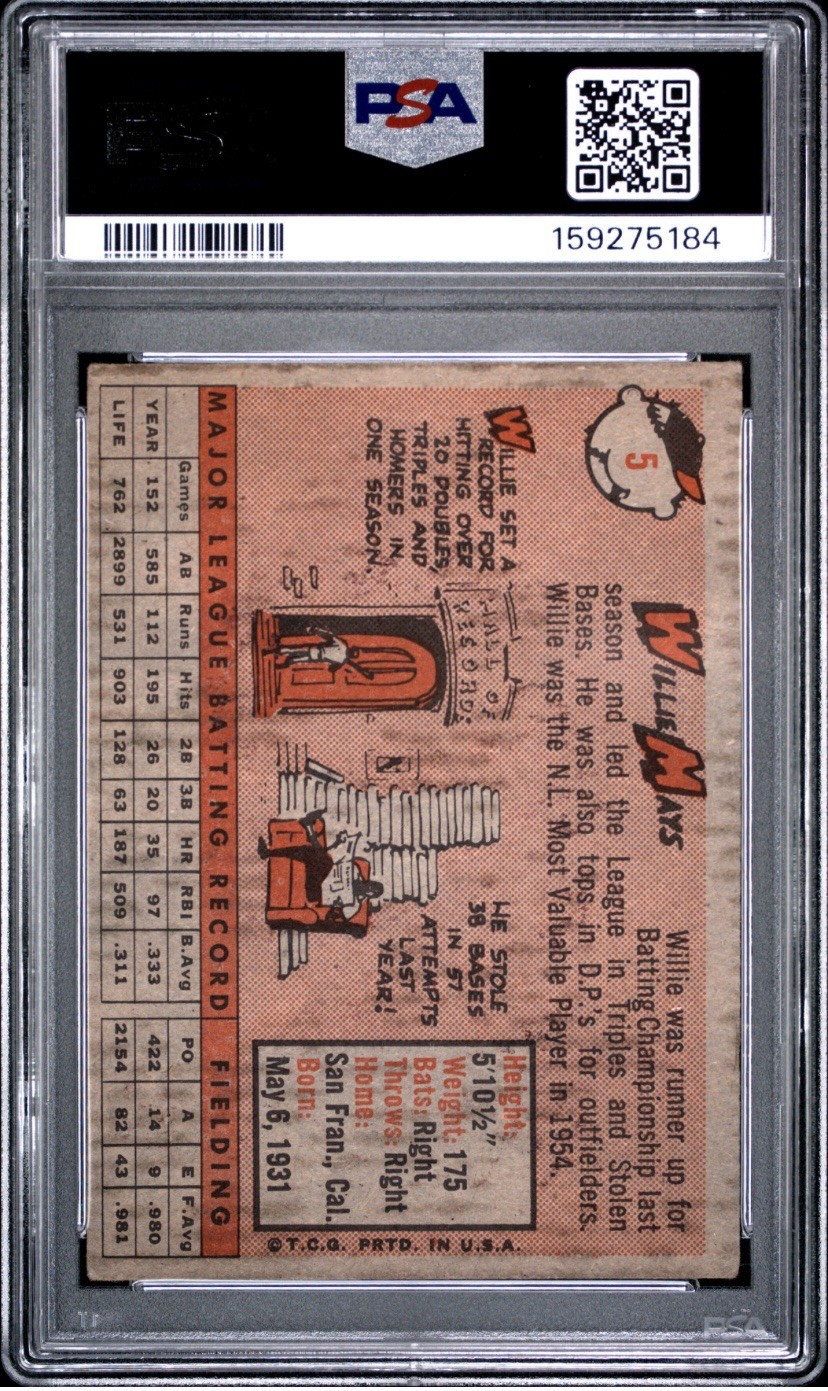 PSA
159275184
5
WILLIE MAYS
Willie was runner up for
Batting Championship last
season and led the League in Triples and Stolen
Bases. He was also tops in D.P.'s for outfielders.
Willie was the N.L. Most Valuable Player in 1954.
WILLIE SET A
RECORD FOR
HITTING OVER
20 DOUBLES,
TRIPLES AND
HOMERS IN
ONE SEASON.
HALL OF
RECORDS
HE STOLE
38 BASES
IN 57
ATTEMPTS
LAST
YEAR!
Height:
5'10½"
Weight: 175
Bats: Right
Throws: Right
Home:
San Fran., Cal.
Born:
May 6, 1931
©T.C.G. PRTD. IN U.S.A.
MAJOR LEAGUE BATTING RECORD FIELDING
Games AB Runs Hits 2B 3B HR RBI B.Avg PO A E F.Avg
YEAR 152 585 112 195 26 20 35 97 .333 422 14 9 .980
LIFE 762 2899 531 903 128 63 187 509 .311 2154 82 43 .981
PSA